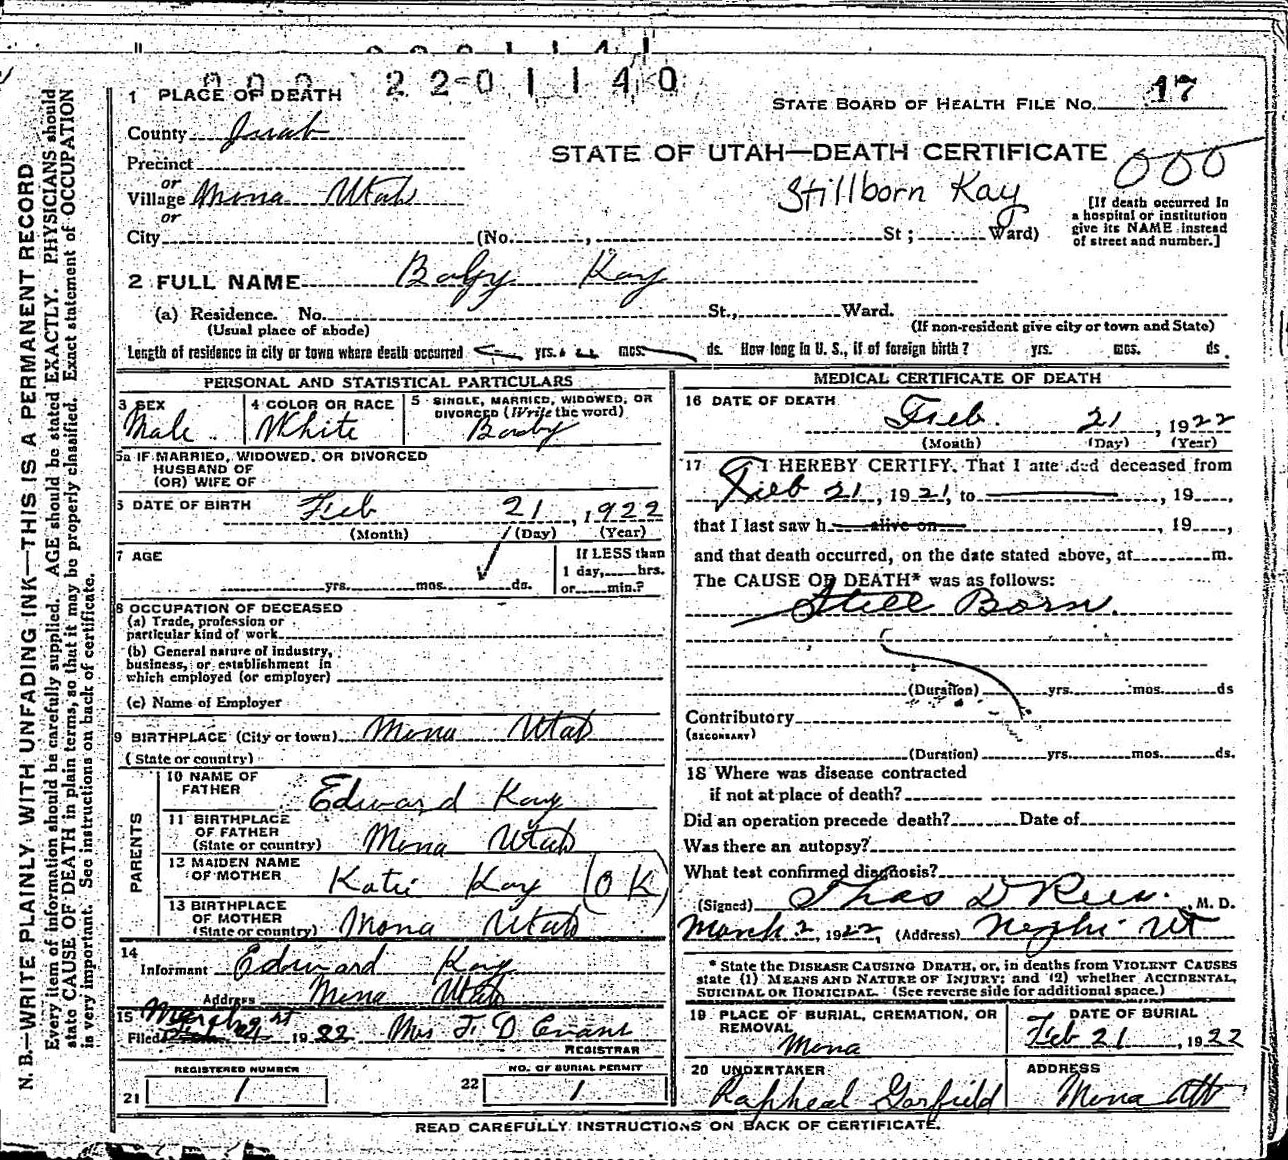 000 2201140
1 PLACE OF DEATH
STATE BOARD OF HEALTH FILE No. 17
County Juab
STATE OF UTAH—DEATH CERTIFICATE
000
Precinct
or
Village Mona Utah
Stillborn Kay
or
City (No. , St ; Ward)
[If death occurred in
a hospital or institution
give its NAME instead
of street and number.]
2 FULL NAME Baby Kay
(a) Residence. No. St., Ward.
(Usual place of abode) (If non-resident give city or town and State)
Length of residence in city or town where death occurred yrs. mos. ds. How long in U. S., if of foreign birth? yrs. mos. ds.
PERSONAL AND STATISTICAL PARTICULARS
3 SEX
Male
4 COLOR OR RACE
White
5 SINGLE, MARRIED, WIDOWED, OR
DIVORCED (Write the word)
Baby
5a IF MARRIED, WIDOWED, OR DIVORCED
HUSBAND OF
(OR) WIFE OF
6 DATE OF BIRTH Feb 21, 1922
(Month) (Day) (Year)
7 AGE
yrs. mos. ds.
If LESS than
1 day, hrs.
or min.?
8 OCCUPATION OF DECEASED
(a) Trade, profession or
particular kind of work
(b) General nature of industry,
business, or establishment in
which employed (or employer)
(c) Name of Employer
9 BIRTHPLACE (City or town) Mona Utah
(State or country)
PARENTS
10 NAME OF
FATHER Edward Kay
11 BIRTHPLACE
OF FATHER
(State or country) Mona Utah
12 MAIDEN NAME
OF MOTHER Katie Kay (OK)
13 BIRTHPLACE
OF MOTHER
(State or country) Mona Utah
14
Informant Edward Kay
Address Mona Utah
15
Filed March 1922 Mrs T. D Evans
REGISTRAR
REGISTERED NUMBER
21 1
NO. OF BURIAL PERMIT
22 1
MEDICAL CERTIFICATE OF DEATH
16 DATE OF DEATH
Feb. 21, 1922
(Month) (Day) (Year)
17 I HEREBY CERTIFY. That I attended deceased from
Feb 21, 1921, to , 19 ,
that I last saw h alive on , 19 ,
and that death occurred, on the date stated above, at m.
The CAUSE OF DEATH* was as follows:
Still Born.
(Duration) yrs. mos. ds
Contributory
(SECONDARY)
(Duration) yrs. mos. ds.
18 Where was disease contracted
if not at place of death?
Did an operation precede death? Date of
Was there an autopsy?
What test confirmed diagnosis?
(Signed) Thos D Rees. , M. D.
March 2, 1922, (Address) Nephi Ut
* State the DISEASE CAUSING DEATH, or, in deaths from VIOLENT CAUSES
state (1) MEANS AND NATURE OF INJURY; and (2) whether ACCIDENTAL,
SUICIDAL OR HOMICIDAL. (See reverse side for additional space.)
19 PLACE OF BURIAL, CREMATION, OR
REMOVAL
Mona
DATE OF BURIAL
Feb 21, 1922
20 UNDERTAKER
Rapheal Garfield
ADDRESS
Mona Ut
READ CAREFULLY INSTRUCTIONS ON BACK OF CERTIFICATE.
N. B.—WRITE PLAINLY WITH UNFADING INK—THIS IS A PERMANENT RECORD
Every item of information should be carefully supplied. AGE should be stated EXACTLY. PHYSICIANS should
state CAUSE OF DEATH in plain terms, so that it may be properly classified. Exact statement of OCCUPATION
is very important. See instructions on back of certificate.